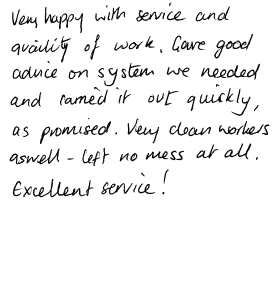 Very happy with service and
quality of work. Gave good
advice on system we needed
and carried it out quickly,
as promised. Very clean workers
aswell - left no mess at all.
Excellent service!